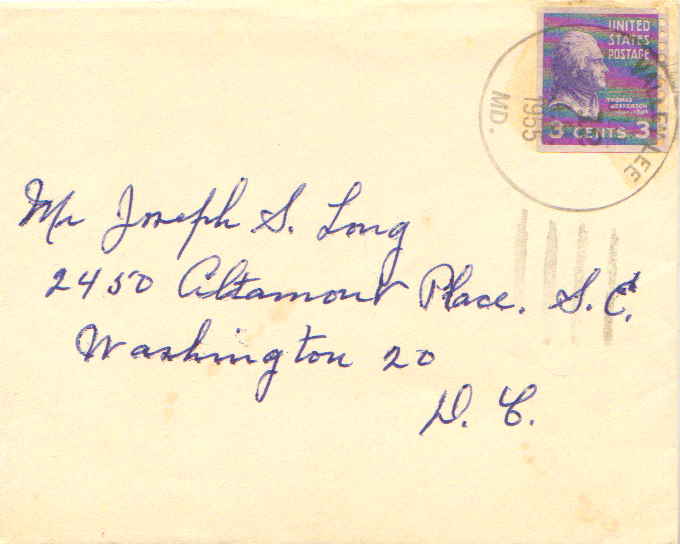 UNITED
STATES
POSTAGE
THOMAS
JEFFERSON
3 CENTS 3
LEE
1955
MD.
Mr Joseph S. Long
2450 Altamont Place. S.E.
Washington 20
D. C.